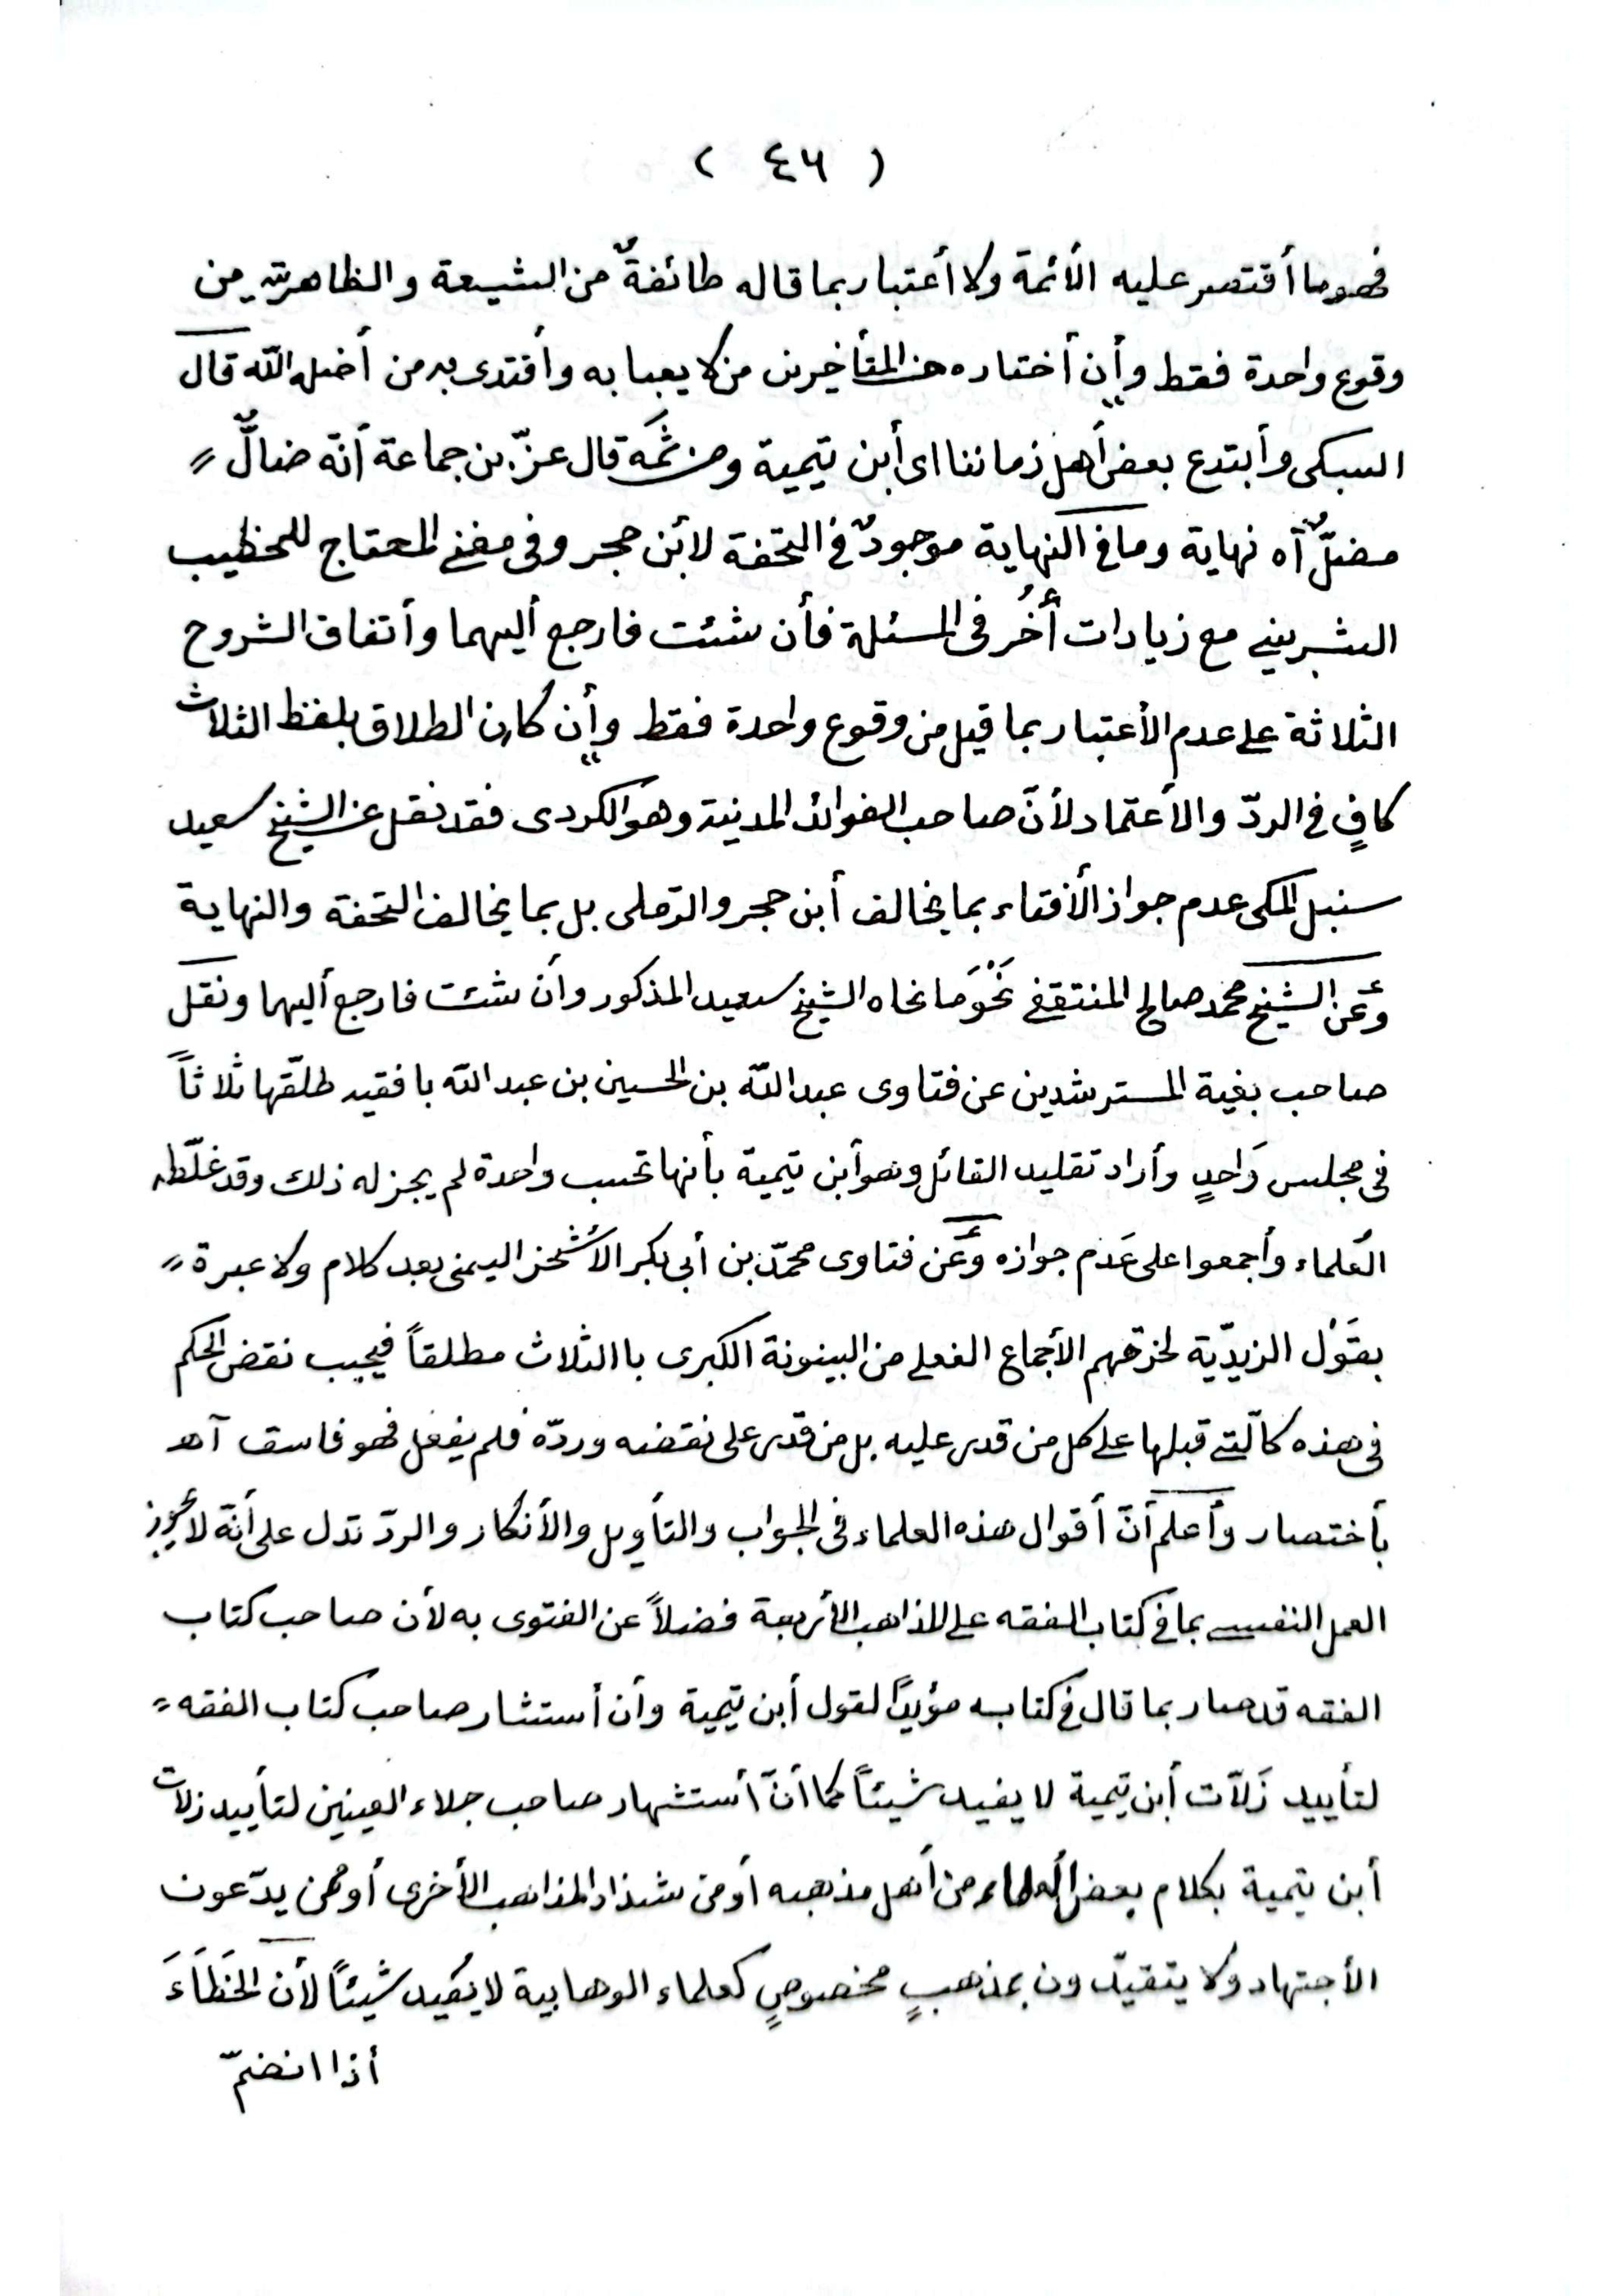 ( ٤٦ )
فهو ما أقتصر عليه الأئمة ولا أعتبار بما قاله طائفةٌ من الشيعة والظاهرية من
وقوع واحدة فقط وأن أختاره من المتأخرين من لا يعبا به وأقتدى به من أضله الله قال
السبكى وأبتدع بعض أهل زماننا اى أبن تيمية ومن ثَمَّه قال عزّ بن جماعة أنّه ضالٌّ
مضلٌّ آه نهاية وما في النهاية موجودٌ في التحفة لأبن حجر وفى مغنى المحتاج للخطيب
الشربينى مع زيادات أُخَرُ فى المسئلة فأن شئت فارجع أليهما وأتفاق الشروح
الثلاثة على عدم الأعتبار بما قيل من وقوع واحدة فقط وأن كان الطلاق بلفظ الثلاث
كافٍ في الردّ والأعتماد لأنّ صاحب الفوائد المدنية وهو الكردى فقد نقل عن الشيخ سعيد
سنبل المكى عدم جواز الأفتاء بما يخالف أبن حجر والرملى بل بما يخالف التحفة والنهاية
وَعَن الشيخ محمد صالح المنتقفى نَحْوَ ما نحاه الشيخ سعيد المذكور وأن شئت فارجع أليهما ونقل
صاحب بغية المسترشدين عن فتاوى عبد الله بن الحسين بن عبد الله بافقيه طلّقها ثلاثاً
فى مجلس وَاحدٍ وأراد تقليد القائل وهو أبن تيمية بأنها تحسب واحدة لم يجز له ذلك وقد غلّطه
العُلماء وأجمعوا على عَدم جوازه وَعَن فتاوى محمّد بن أبى بكر الأشخر اليمنى بعد كلام ولا عبرة
بقَوْل الزيديّة لخرقهم الأجماع الفعلى من البينونة الكبرى باالثلاث مطلقاً فيجب نقض الحكم
فى هذه كالّتى قبلها على كل من قدر عليه بل من قدر على نقضه وردّه فلم يفعل فهو فاسق آهـ
بأختصار وأعلم أنّ أقوال هذه العلماء فى الجواب والتأويل والأنكار والردّ تدل على أنّه لا يجوز
العمل النفسى بما في كتاب الفقه على المذاهب الأربعة فضلاً عن الفتوى به لأن صاحب كتاب
الفقه قد صار بما قال في كتابه مؤيداً لقول أبن تيمية وأن أستشار صاحب كتاب الفقه
لتأييد زَلّات أبن تيمية لا يفيد شيئاً كما أنّ أستشهاد صاحب جلاء العينين لتأييد زلات
أبن تيمية بكلام بعض العلماء من أهل مذهبه أو من شذاذ المذاهب الأخرى أو ممن يدّعون
الأجتهاد ولا يتقيّدون بمذهبٍ مخصوصٍ كعلماء الوهابية لا يُفيد شيئاً لأن الخَطَاءَ
أذا انضمّ